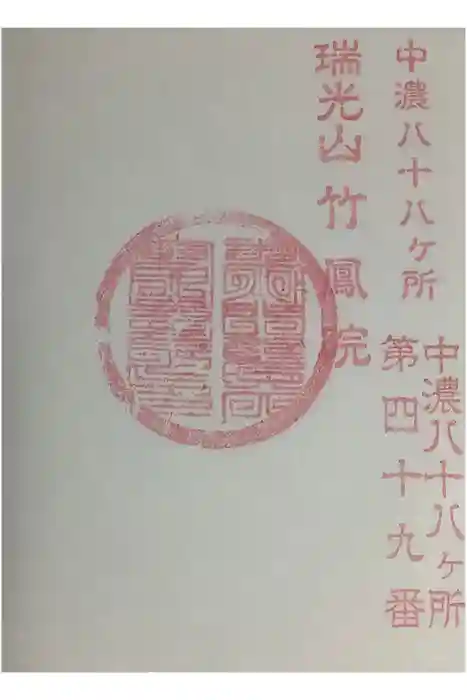 中濃八十八ヶ所
中濃八十八ヶ所
第四十九番
瑞光山竹鳳院